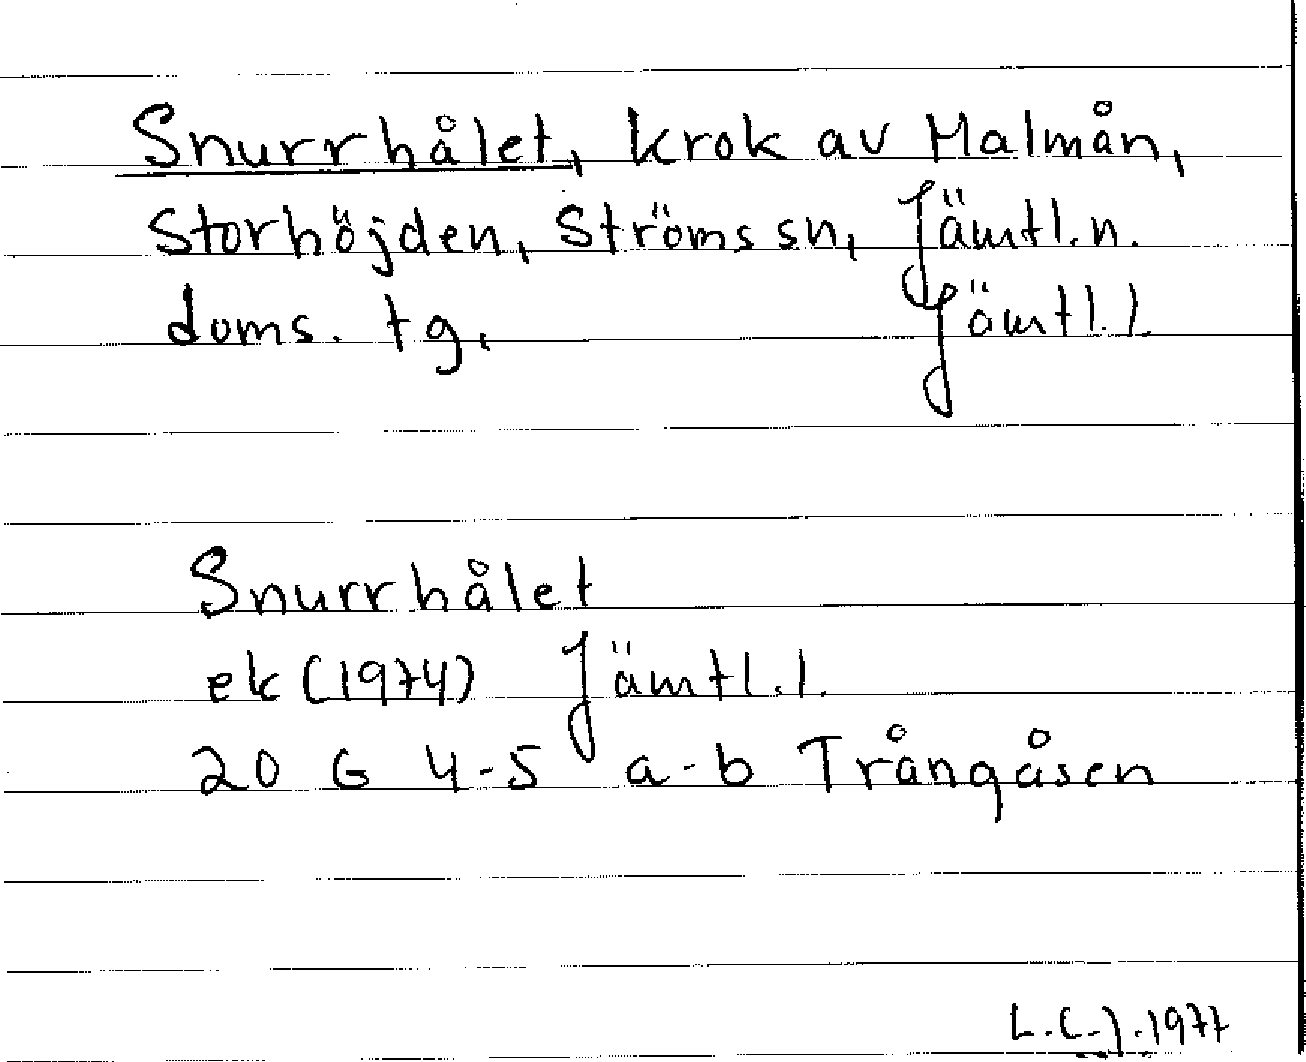 Snurrhålet, krok av Malmån,
Storhöjden, Ströms sn, Jämtl. n.
doms. tg, Jämtl. l.
Snurrhålet
ek (1974) Jämtl. l.
20 G 4-5 a-b Trångåsen
L.C-J. 1977